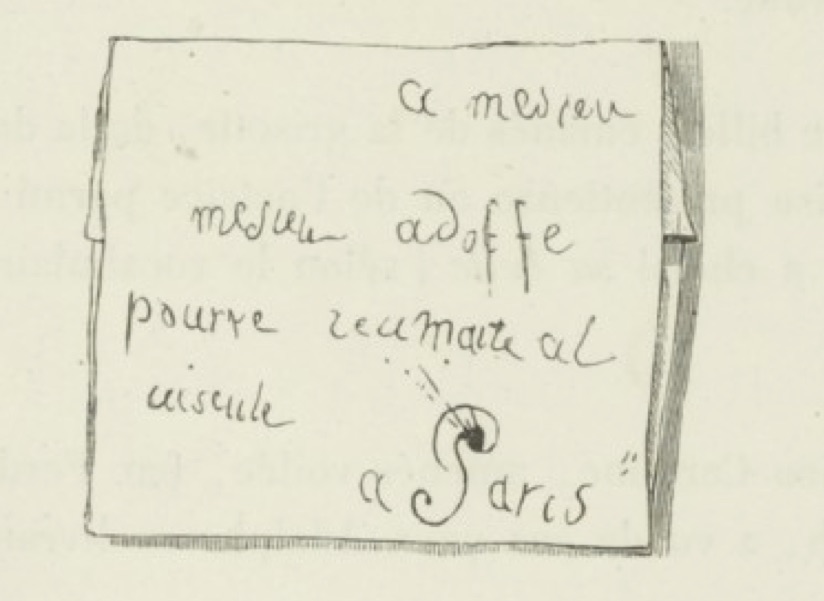 a mesieu
mesieu adoffe
pourre reumaite al
uiscule
a Paris "